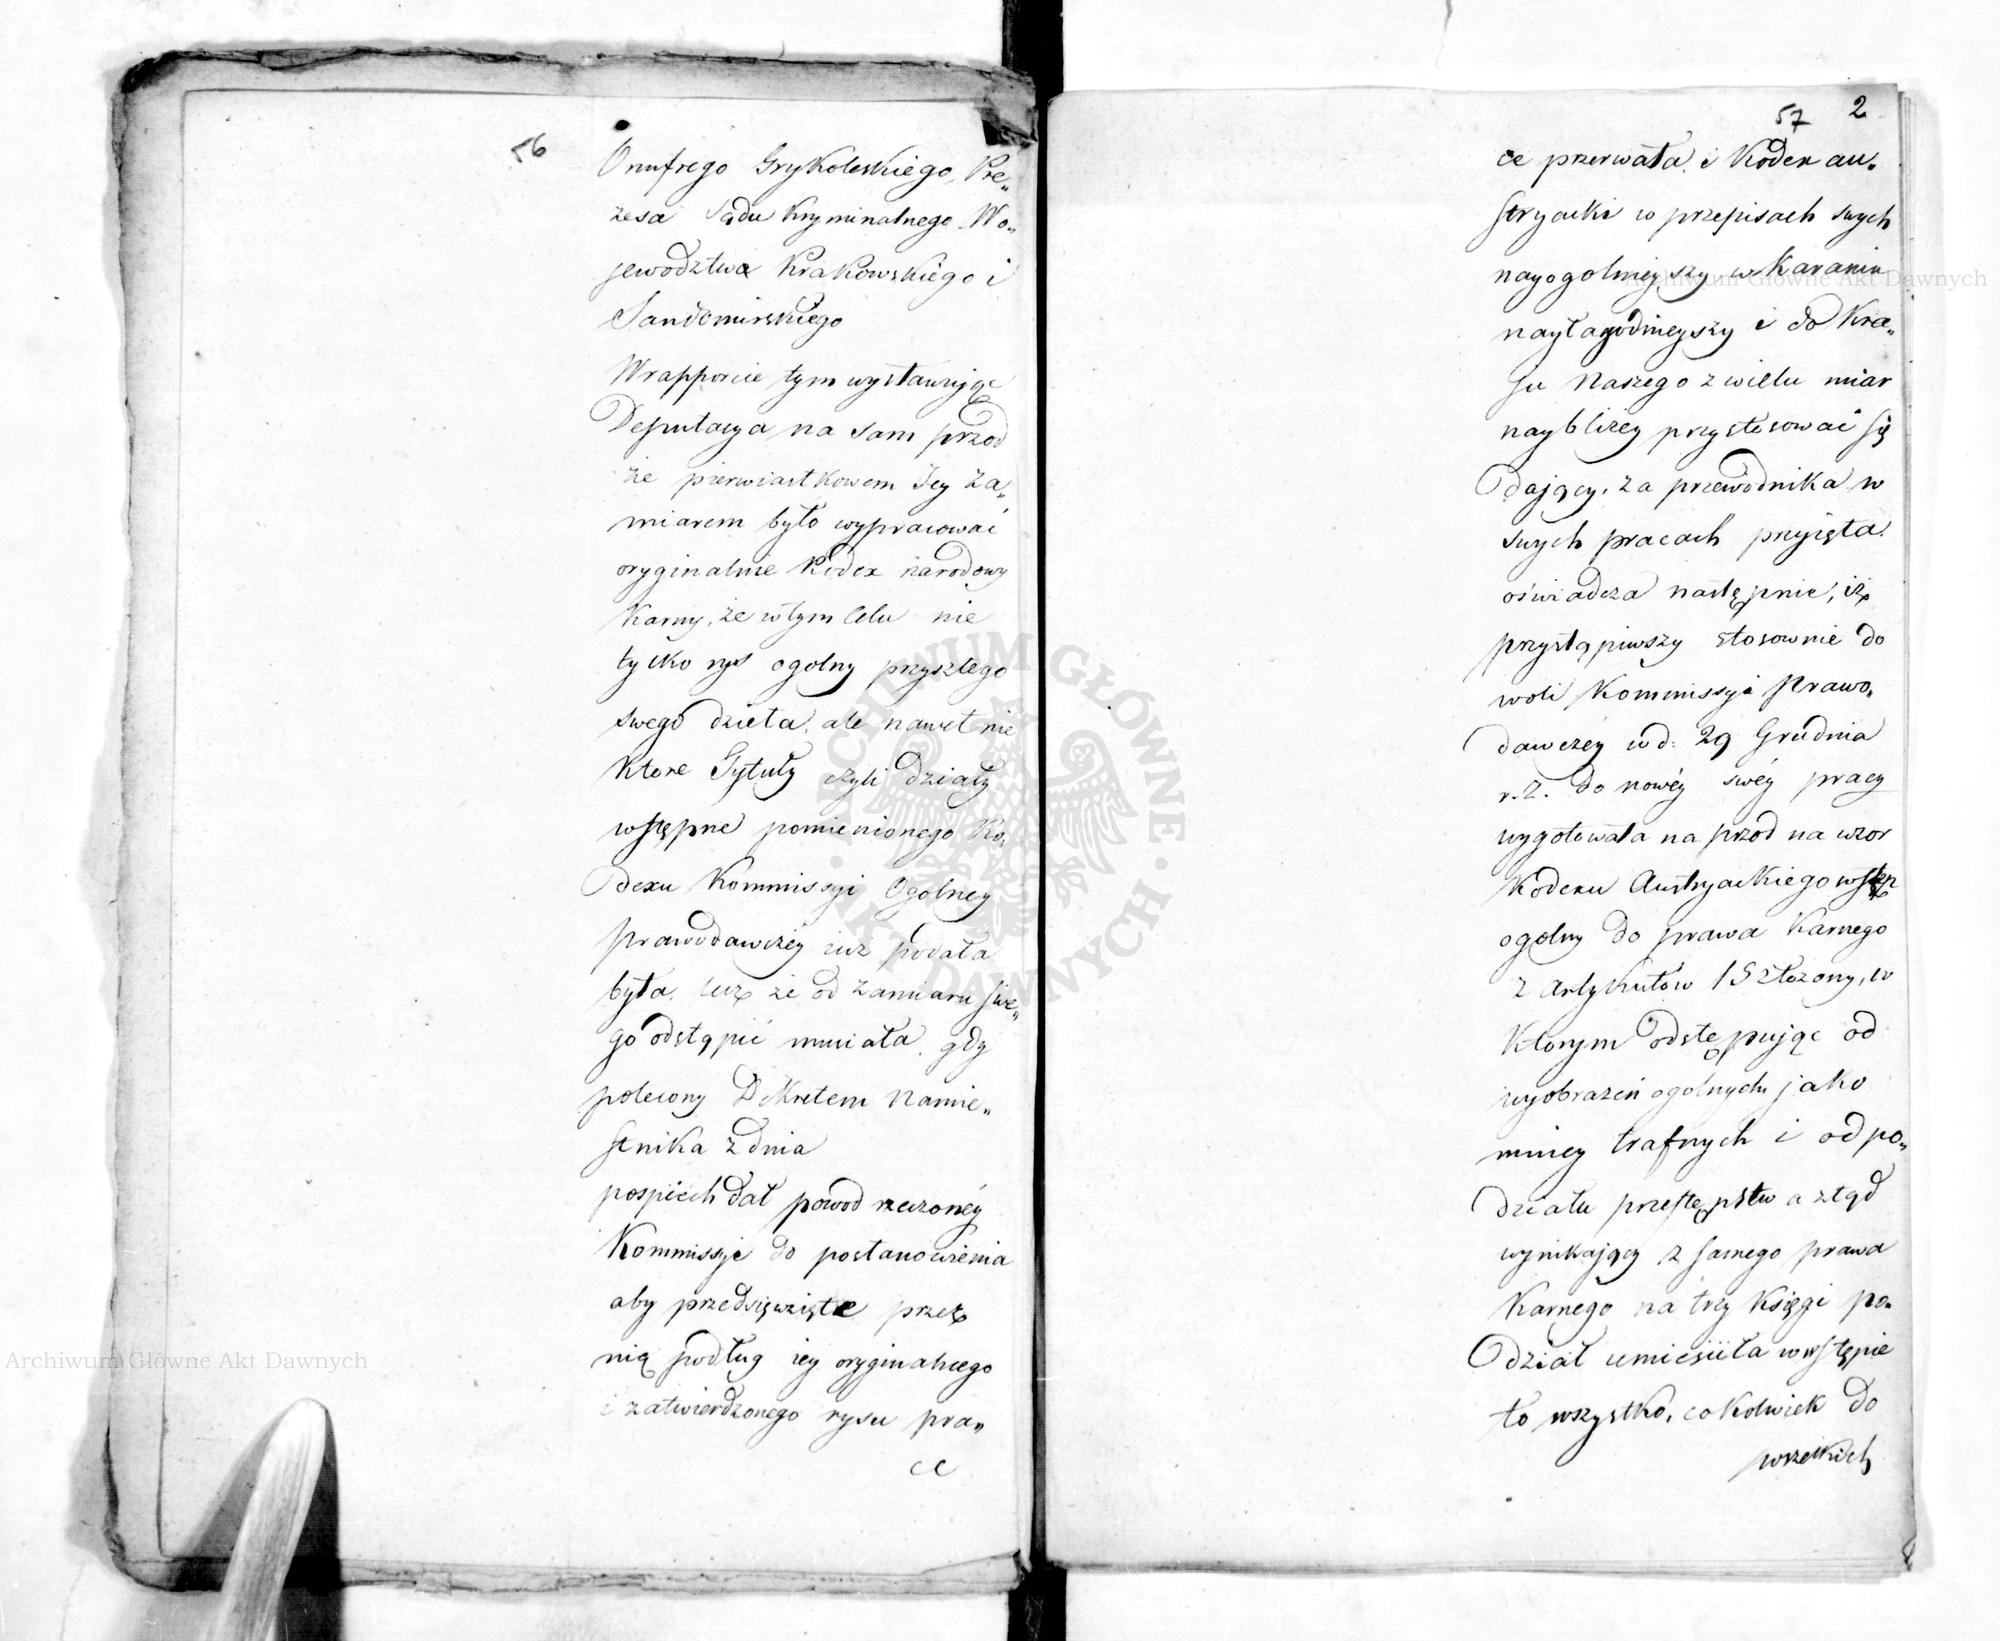 56
Onufrego Grykoleskiego, Pre„
zesa Sądu Kryminalnego Wo„
jewodztwa Krakowskiego i
Sandomirskiego
W rapporcie tym wystawując
Deputacya na sam przod
że pierwiastkowem Jey za„
miarem było wypracować
oryginalnie Kodex narodowy
Karny, że w tym Celu nie
tylko rys ogolny przyszłego
swego dzieła, ale nawet nie
ktore Tytuły czyli działy
wstępne pomienionego Ko„
dexu Kommissyi Ogolney
prawodawczéy iuz podała
była, lecz że od zamiaru swe„
go odstąpić musiała, gdy
polecony Dekretem Namie„
stnika z dnia
pospiech dał powod rzeczonéy
Kommissyi do postanowienia
aby przedsięwzięte przez
nią podług iey oryginalnego
i zatwierdzonego rysu pra„
ce
57 2
ce przerwała, i Kodex au„
stryacki w przepisach swych
nayogolnieyszy w Karaniu
nayłagodnieyszy i do Kra„
ju Naszego z wielu miar
naybliżey przystosować się
dający, za przewodnika w
swych pracach przyięła.
oświadcza następnie, iż
przystąpiwszy stosownie do
woli Kommissyi Prawo„
dawczéy w d: 29 Grudnia
r. z. do nowéy swéy pracy
wygotowała na przod na wzor
Kodexu Austryackiego wstęp
ogolny do prawa Karnego
z Artykułow 15 złożony, w
Ktorym odstępując od
wyobrażeń ogolnych jako
mniey trafnych i od po„
działu przestępstw a ztąd
wynikający z samego prawa
Karnego na trzy Księgi po„
dział umieściła w wstępie
to wszystko, cokolwiek do
wszelkich
Archiwum Główne Akt Dawnych
Archiwum Główne Akt Dawnych
ARCHIWUM GŁÓWNE · AKT DAWNYCH ·